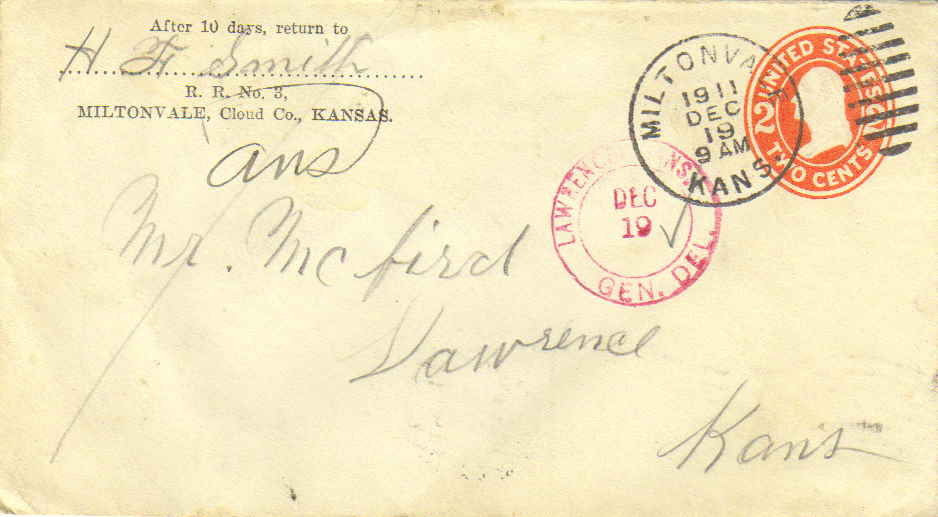 After 10 days, return to
H F Smith
R. R. No. 3,
MILTONVALE, Cloud Co., KANSAS.
ans
MILTONVALE
1911
DEC
19
9 AM
KANS.
UNITED STATES
2
TWO CENTS
LAWRENCE, KANS.
DEC
19
GEN. DEL.
Mr. Mc fird
Lawrence
Kans